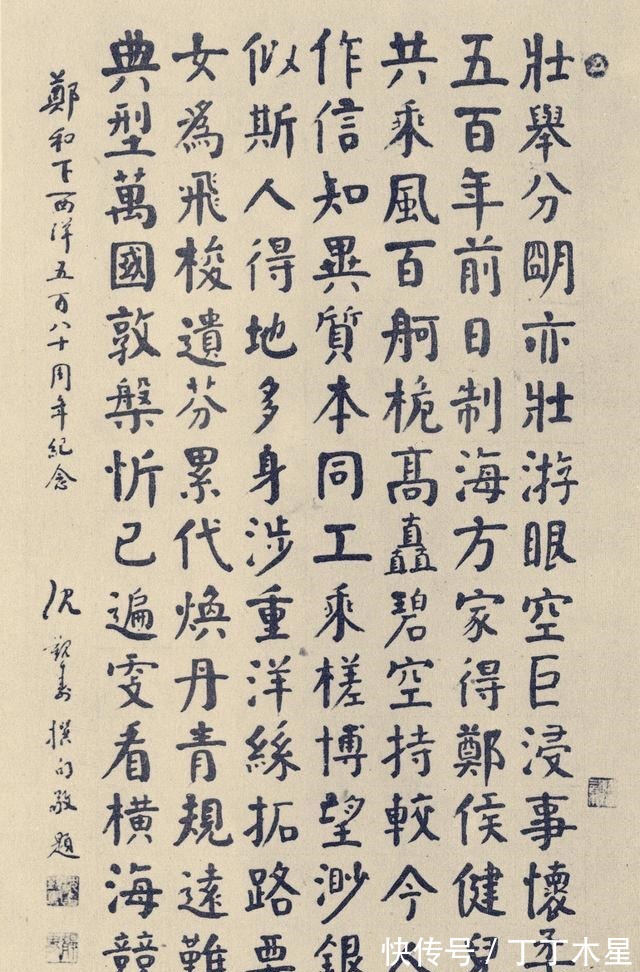 壯舉分朙亦壯游眼空巨浸事懷
五百年前日制海方家得鄭侯健兒
共乘風百舸桅髙矗碧空持較今
作信知異質本同工乘槎博望渺銀
似斯人得地多身涉重洋絲拓路
女為飛梭遺芬累代煥丹青規遠難
典型萬國敦槃忻已遍看橫海競
鄭和下西洋五百八十周年紀念 沈覲壽撰句敬題
快传号 / 丁丁木星